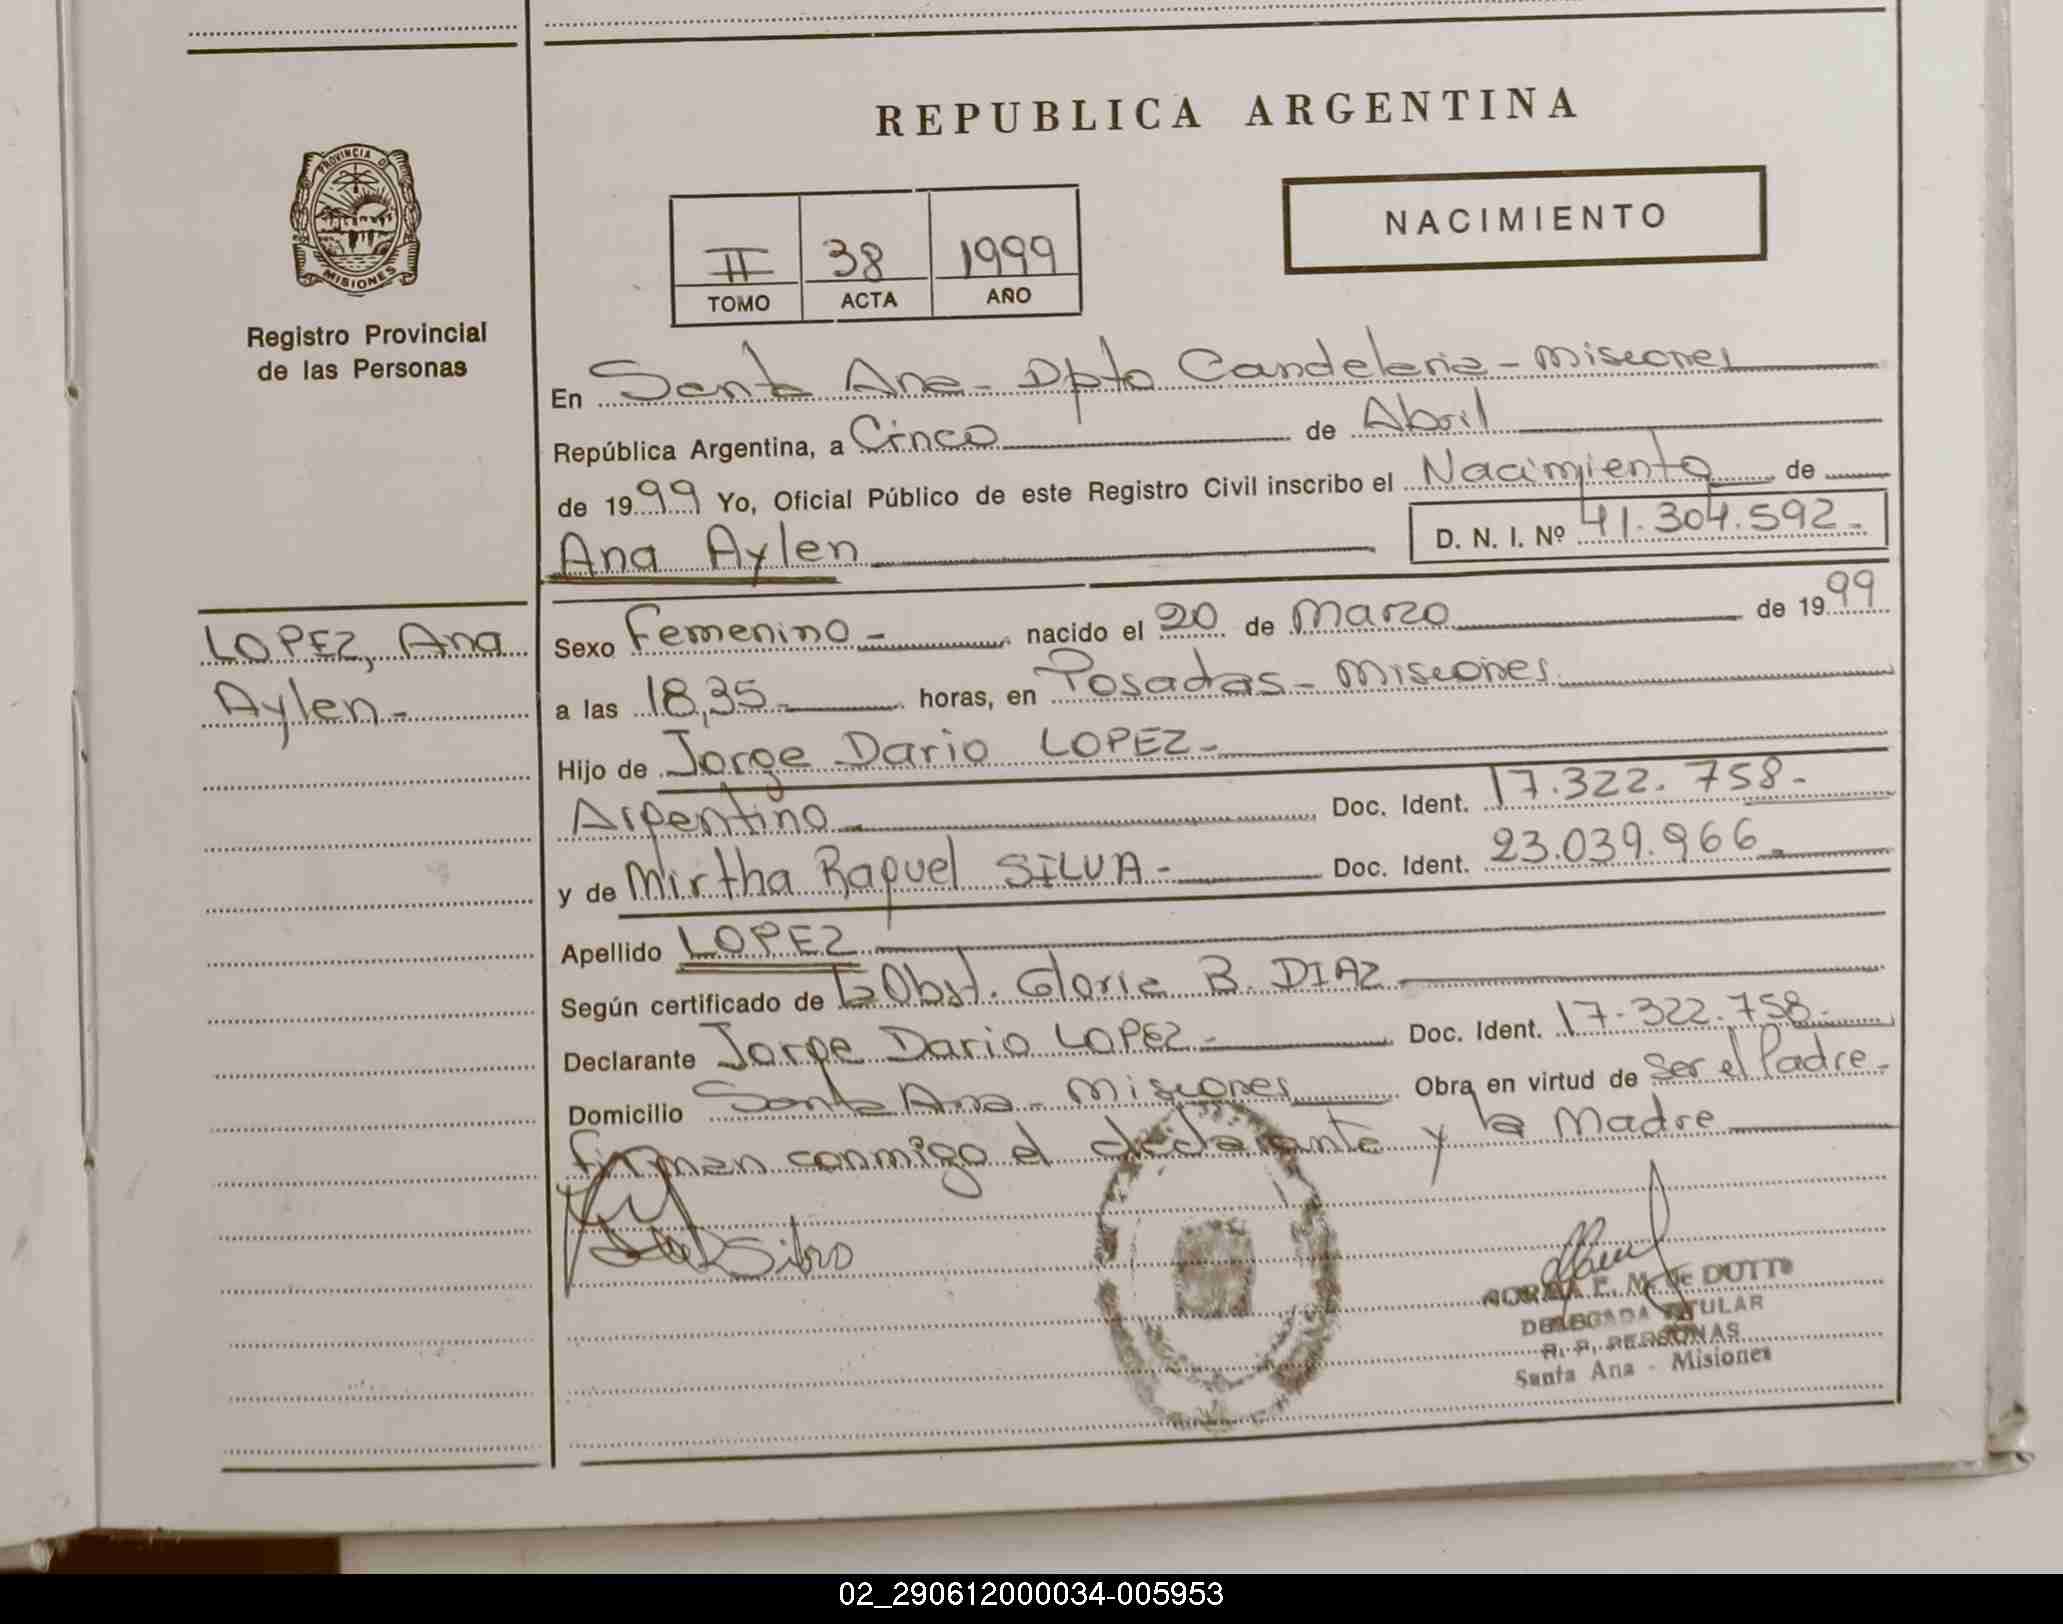 REPUBLICA ARGENTINA
PROVINCIA D
MISIONES
Registro Provincial
de las Personas
NACIMIENTO
II 38 1999
TOMO ACTA AÑO
En Santa Ana - Dpto Candelaria - Misiones
República Argentina, a Cinco de Abril
de 1999 Yo, Oficial Público de este Registro Civil inscribo el Nacimiento de
Ana Aylen D. N. I. Nº 41.304.592.-
LOPEZ, Ana
Aylen.-
Sexo Femenino.- nacido el 20 de Marzo de 1999
a las 18,35.- horas, en Posadas - Misiones.
Hijo de Jorge Dario LOPEZ.-
Argentino.- Doc. Ident. 17.322.758.-
y de Mirtha Raquel SILVA.- Doc. Ident. 23.039.966.-
Apellido LOPEZ.
Según certificado de la Obst. Gloria B. DIAZ
Declarante Jorge Dario LOPEZ.- Doc. Ident. 17.322.758.-
Domicilio Santa Ana - Misiones Obra en virtud de ser el Padre.-
Firman conmigo el declarante y la Madre
E. M. de DUTTO
DELEGADA TITULAR
R. P. PERSONAS
Santa Ana - Misiones
02_290612000034-005953